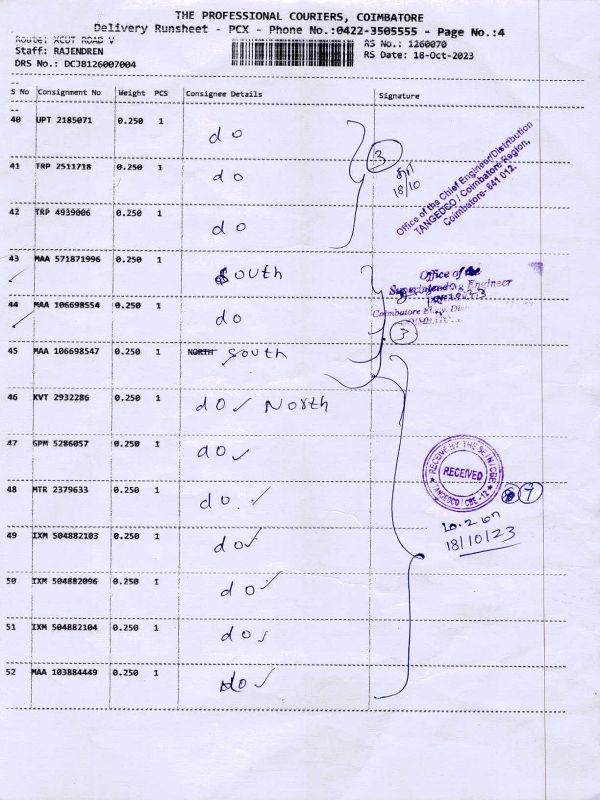 THE PROFESSIONAL COURIERS, COIMBATORE
Delivery Runsheet - PCX - Phone No.:0422-3505555 - Page No.:4
Route: XCUT ROAD V
RS No.: 1260070
Staff: RAJENDREN
RS Date: 18-Oct-2023
DRS No.: DCJB126007004
S No Consignment No Weight PCS Consignee Details Signature
40 UPT 2185071 0.250 1 do
3
18/10
Office of the Chief Engineer/Distribution
TANGEDCO / Coimbatore Region,
Coimbatore- 641 012.
41 TRP 2511718 0.250 1 do
42 TRP 4939006 0.250 1 do
43 MAA 571871996 0.250 1 South
Office of the
Engineer
Coimbatore
44 MAA 106698554 0.250 1 do
3
45 MAA 106698547 0.250 1 NORTH South
46 KVT 2932286 0.250 1 do ✓ North
47 GPM 5286057 0.250 1 do ✓
RECEIVED
TANGEDCO / CBE -12
7
18/10/23
48 MTR 2379633 0.250 1 do. ✓
49 IXM 504882103 0.250 1 do ✓
50 IXM 504882096 0.250 1 do ✓
51 IXM 504882104 0.250 1 do ✓
52 MAA 103884449 0.250 1 do ✓